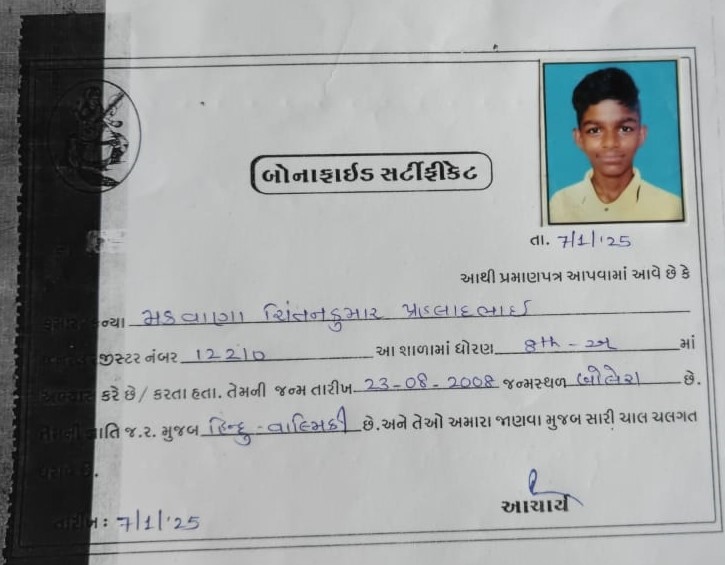 બોનાફાઈડ સર્ટીફીકેટ
તા. 7/1/'25
આથી પ્રમાણપત્ર આપવામાં આવે છે કે
કન્યા મકવાણા ચિંતનકુમાર પ્રહલાદભાઈ
રજીસ્ટર નંબર 12210 આ શાળામાં ધોરણ 8th - અ માં
અભ્યાસ કરે છે / કરતા હતા. તેમની જન્મ તારીખ 23-08-2008 જન્મસ્થળ છે.
તેમની જાતિ જ.ર. મુજબ હિન્દુ - વાલ્મિકી છે. અને તેઓ અમારા જાણવા મુજબ સારી ચાલ ચલગત
ધરાવે છે.
આચાર્ય
તારીખ : 7/1/'25